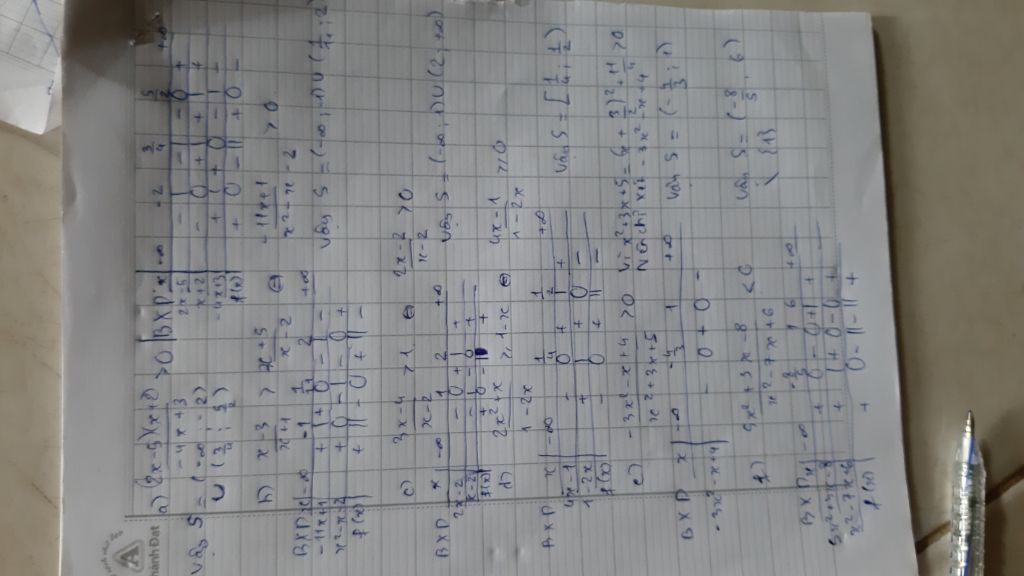 Thanh Đạt
a) (2x-5)(x+2) / (-4x+3) > 0
BXD x | -∞ -2 3/4 5/2 +∞
2x-5 | - | - | - 0 +
x+2 | - 0 + | + | +
-4x+3 | + | + 0 - | -
f(x) | + 0 - || + 0 -
Vậy S = (-∞; -2) ∪ (3/4; 5/2)
b) (x-3)/(x+1) > (x+5)/(x-2) ⊖ (-11x+1)/(x²-x-2) > 0
BXD x | -∞ -1 1/11 2 +∞
-11x+1 | + | + 0 - | -
x²-x-2 | + 0 - | - 0 +
f(x) | + || - 0 + || -
Vậy S = (-∞; -1) ∪ (1/11; 2)
c) (3x-4)/(x-2) > 1 ⊖ (2x-2)/(x-2) > 0
BXD x | -∞ 1 2 +∞
2x-2 | - 0 + | +
x-2 | - | - 0 +
f(x) | + 0 - || +
Vậy S = (-∞; 1) ∪ (2; +∞)
d) (2x²+x)/(1-2x) ≥ 1-x ⊖ (4x-1)/(1-2x) ≥ 0
BXD x | -∞ 1/4 1/2 +∞
4x-1 | - 0 + | +
1-2x | + | + 0 -
f(x) | - 0 + || -
Vậy S = [1/4; 1/2)
e) (-3x²-x+4)/(x²+3x+5) > 0
Vì x²+3x+5 = (x + 3/2)² + 11/4 > 0
Nên chỉ xét -3x²-x+4
BXD x | -∞ -4/3 1 +∞
-3x²-x+4 | - 0 + 0 -
Vậy S = (-4/3; 1)
f) (5x²+3x-8)/(x²-7x+6) < 0
BXD x | -∞ -8/5 1 6 +∞
5x²+3x-8 | + 0 - 0 + | +
x²-7x+6 | + | + 0 - 0 +
f(x) | + 0 - || - || +
Vậy S = (-8/5; 6) \ {1}